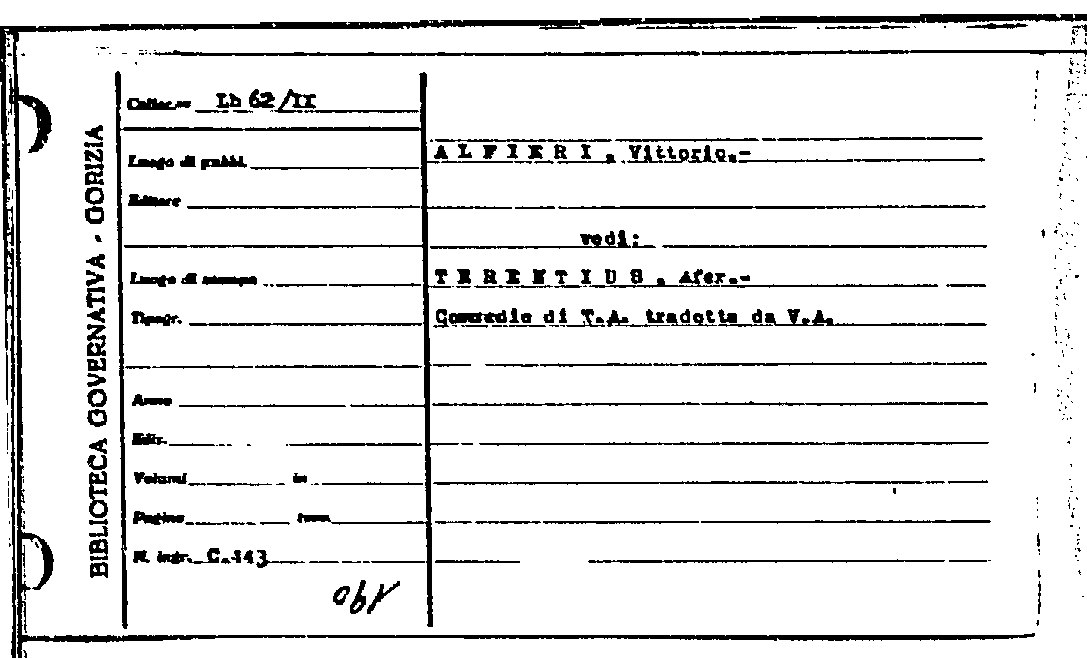 BIBLIOTECA GOVERNATIVA - GORIZIA
Colloc.= Lb 62/II
Luogo di pubbl.
Editore
Luogo di stampa
Tipogr.
Anno
Ediz.
Volumi in
Pagine tavv.
N. ingr. C.143
A L F I E R I , Vittorio.-
vedi:
T E R E N T I U S , Afer.-
Commedie di T.A. tradotte da V.A.